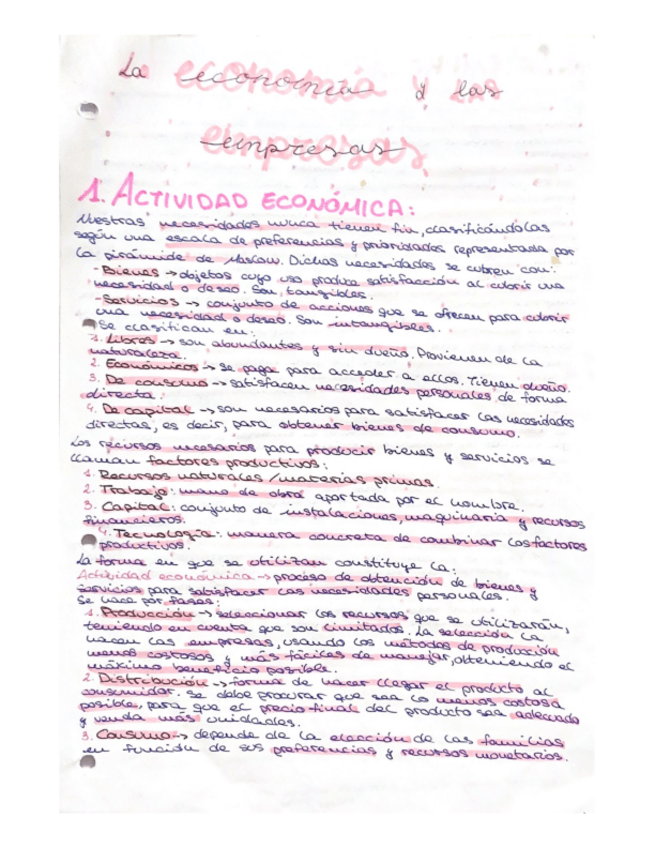 La economía y las
empresas
1. ACTIVIDAD ECONÓMICA:
Nuestras necesidades nunca tienen fin, clasificándolas
según una escala de preferencias y prioridades representada por
la pirámide de Maslow. Dichas necesidades se cubren con:
- Bienes → objetos cuyo uso produce satisfacción al cubrir una
necesidad o deseo. Son tangibles.
- Servicios → conjunto de acciones que se ofrecen para cubrir
una necesidad o deseo. Son intangibles.
Se clasifican en:
1. Libres → son abundantes y sin dueño. Provienen de la
naturaleza.
2. Económicos → se paga para acceder a ellos. Tienen dueño.
3. De consumo → satisfacen necesidades personales de forma
directa.
4. De capital → son necesarios para satisfacer las necesidades
directas, es decir, para obtener bienes de consumo.
Los recursos necesarios para producir bienes y servicios se
llaman factores productivos:
1. Recursos naturales/materias primas.
2. Trabajo: mano de obra aportada por el hombre.
3. Capital: conjunto de instalaciones, maquinaria y recursos
financieros.
4. Tecnología: manera concreta de combinar los factores
productivos.
La forma en que se utilizan constituye la:
Actividad económica → proceso de obtención de bienes y
servicios para satisfacer las necesidades personales.
Se hace por fases:
1. Producción → seleccionar los recursos que se utilizarán,
teniendo en cuenta que son limitados. La selección la
hacen las empresas, usando los métodos de producción
menos costosos y más fáciles de manejar, obteniendo el
máximo beneficio posible.
2. Distribución → forma de hacer llegar el producto al
consumidor. Se debe procurar que sea lo menos costosa
posible, para que el precio final del producto sea adecuado
y venda más unidades.
3. Consumo → depende de la elección de las familias
en función de sus preferencias y recursos monetarios.